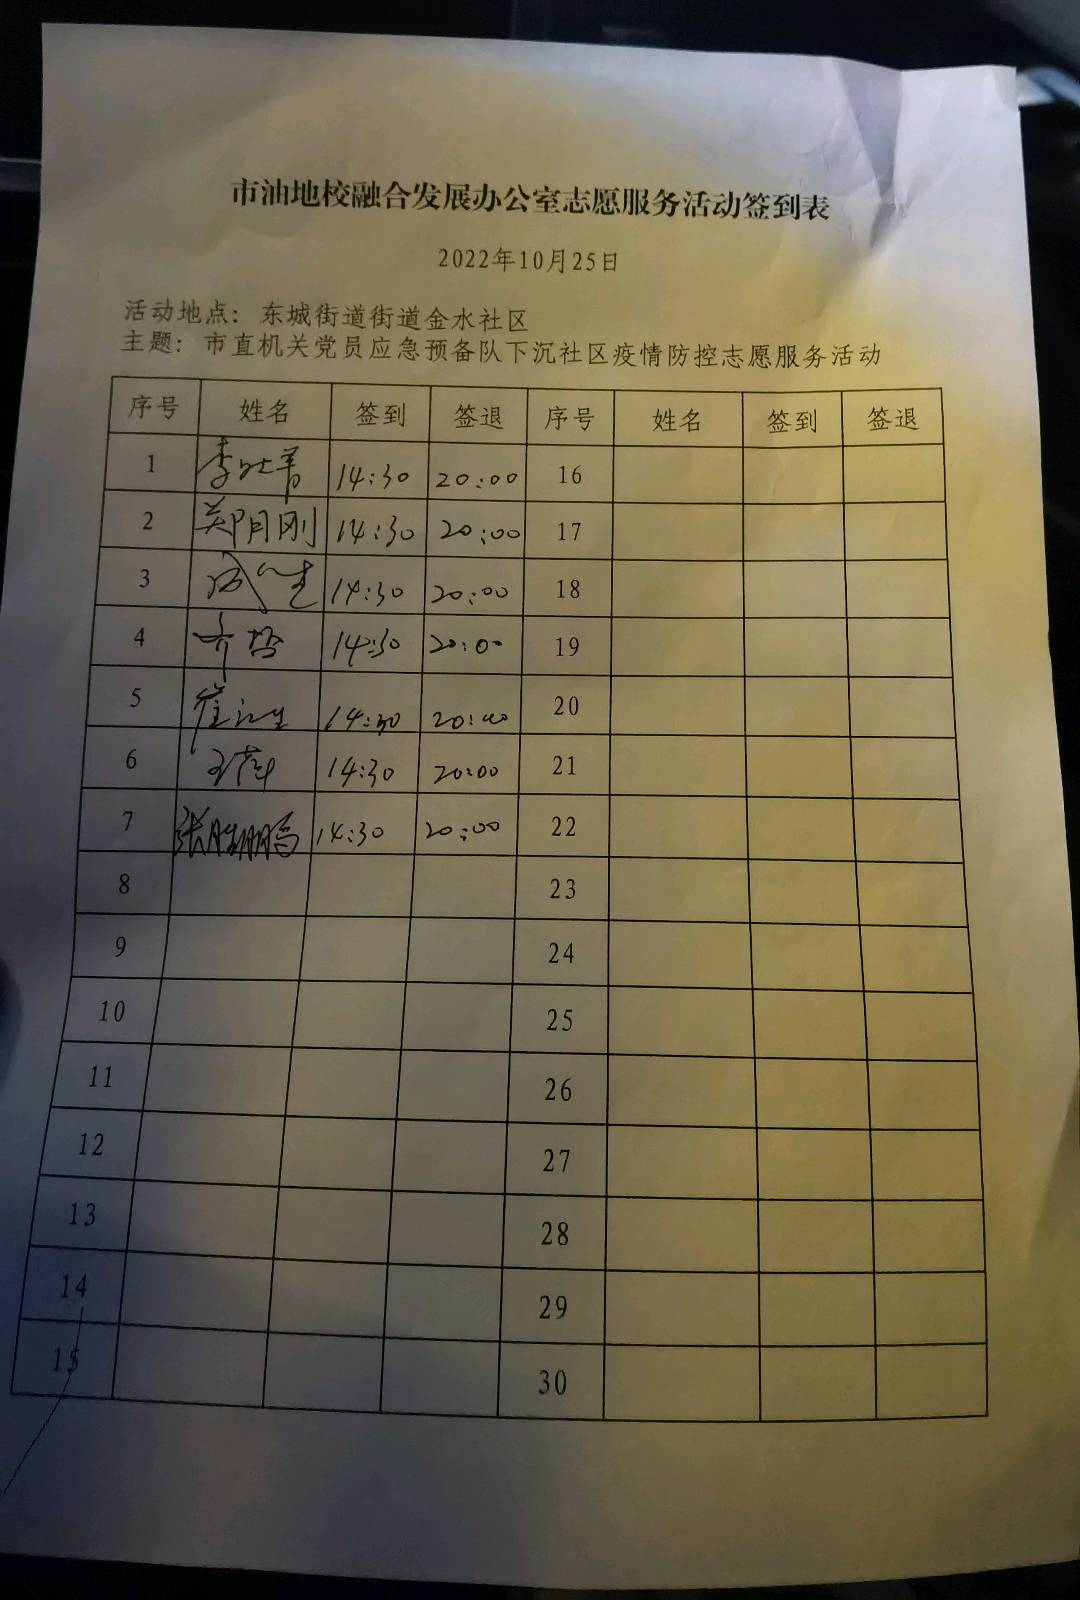 市油地校融合发展办公室志愿服务活动签到表
2022年10月25日
活动地点：东城街道街道金水社区
主题：市直机关党员应急预备队下沉社区疫情防控志愿服务活动
序号 姓名 签到 签退 序号 姓名 签到 签退
1 14:30 20:00 16
2 郑月刚 14:30 20:00 17
3 14:30 20:00 18
4 14:30 20:00 19
5 14:30 20:00 20
6 14:30 20:00 21
7 张胜鹏 14:30 20:00 22
8 23
9 24
10 25
11 26
12 27
13 28
14 29
15 30